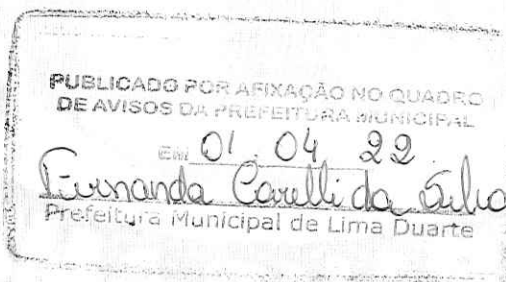 PUBLICADO POR AFIXAÇÃO NO QUADRO
DE AVISOS DA PREFEITURA MUNICIPAL
EM 01.04 22
Fernanda Carelli da Silva
Prefeitura Municipal de Lima Duarte